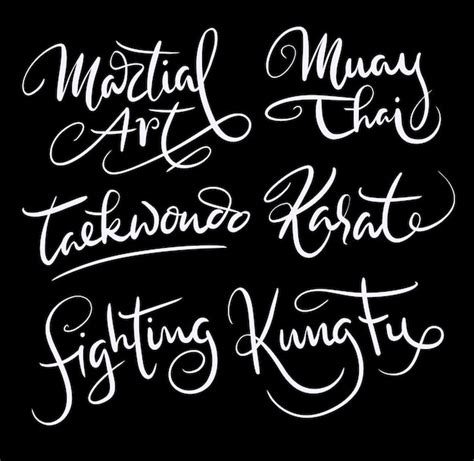 Martial
Art
Muay
Thai
Taekwondo
Karate
Fighting
Kung Fu